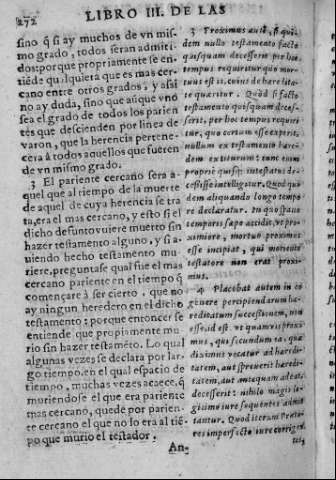 272 LIBRO III. DE LAS
sino q̃ si ay muchos de vn mis-
mo grado, todos seran admiti-
dos: porque propriamente se en-
tiēde q̃ ulquiera que es mas cer-
cano entre otros grados, y asi
no ay duda, sino que aũque vno
sea el grado de todos los parien
tes que descienden por linea de
varon, que la herencia pertene-
cera à todos aquellos que fueren
de vn mismo grado.
3 El pariente cercano sera a-
quel que al tiempo de la muerte
de aquel de cuya herencia se tra
ta, era el mas cercano, y esto si el
dicho defunto viuiere muerto sin
hazer testamento alguno, y si a-
uiendo hecho testamento mu-
riere, preguntase qual fue el mas
cercano pariente en el tiempo q̃
començare à ser cierto, que no
ay ningun heredero en el dicho
testamento: porque entonces se
entiende que propiamente mu-
rio sin hazer testamēto. Lo qual
algunas vezes se declara por lar-
go tiempo, en el qual espacio de
tiempo, muchas vezes acaece, q̃
muriendose el que era pariente
mas cercano, quede por parien-
te cercano el que no lo era al tiē-
po que murio el testador.
3 Proximus autē, si qui-
dem nullo testamento facto
quisquam decesserit, per hoc
tempus requiritur quo mor-
tuus est is, cuius de heredita-
te quæritur. Quod si facto
testamento quisquam deces-
serit, per hoc tempus requiri-
tur, quo certum esse cœperit,
nullum ex testamento hære-
dem extiturum: tum enim
proprie quisq; intestatus de-
cessisse intelligitur. Quod qui
dem aliquando longo tempo
re declaratur. In quo spatio
temporis sæpe accidit, vt pro-
ximiore, mortuo proximus
esse incipiat, qui moriente
testatore non erat proxi-
mus.
4 Placebat autem in eo
genere percipiendarum hæ-
reditatum successionem, non
esse, id est. vt quamvis proxi-
mus, qui secundum ea, quæ
diximus vocatur ad heredi-
tatem, aut spreuerit heredi-
tatem, aut antequam adeat,
decesserit: nihilo magis le-
gitimo iure sequentes admit
tantur. Quod iterum Præto-
res imperfecto iure corrigen
An-
tes,